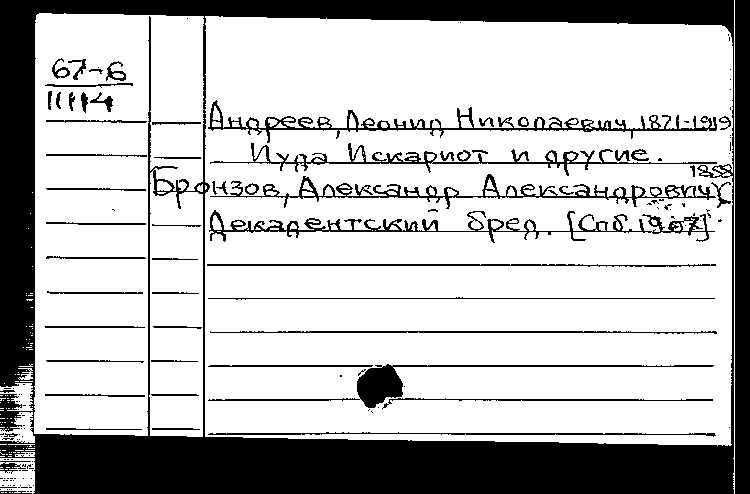 67-6
11114
Андреев, Леонид Николаевич, 1871-1919
Иуда Искариот и другие.
1858
Бронзов, Александр Александрович
Декадентский бред. [Спб. 1907].